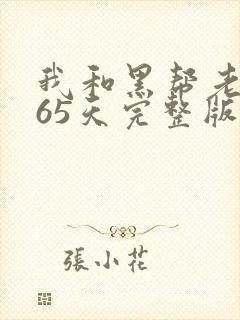 我和黑帮老
65天完整版
張小花